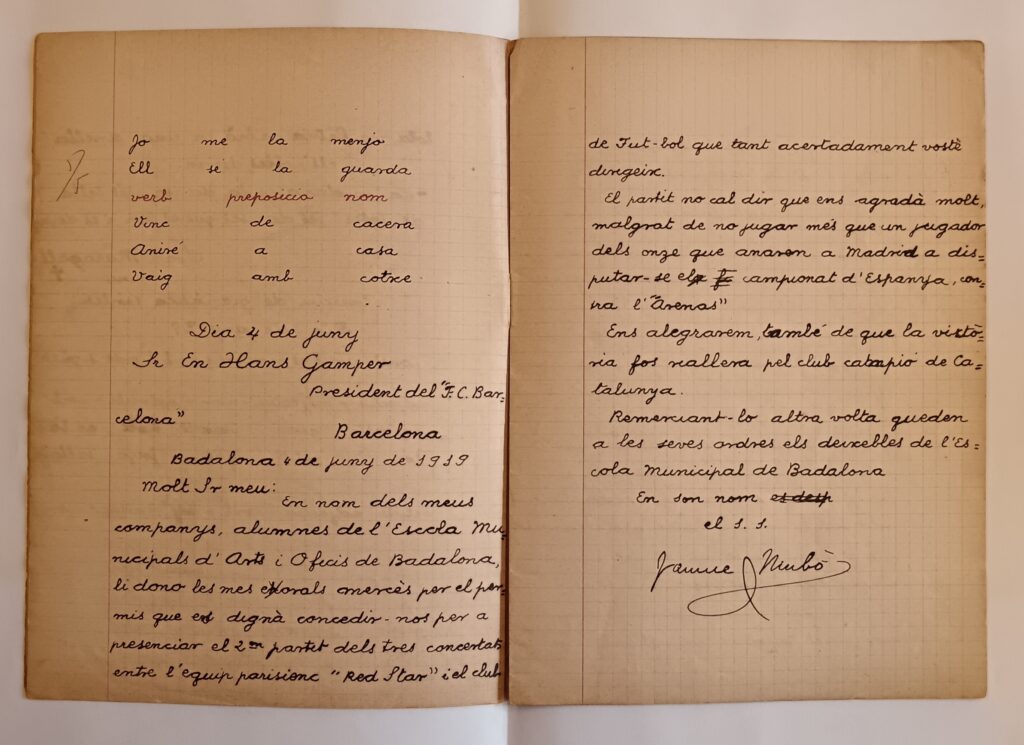 Jo me la menjo
Ell se la guarda
verb preposicia nom
Vinc de cacera
Aniré a casa
Vaig amb cotxe
Dia 4 de juny
Sr En Hans Gamper
President del "F.C. Bar-
celona"
Barcelona
Badalona 4 de juny de 1919
Molt Sr meu:
En nom dels meus
companys, alumnes de l'Escola Mu-
nicipals d'Arts i Oficis de Badalona,
li dono les mes corals mercès per el per-
mis que es dignà concedir-nos per a
presenciar el 2on partit dels tres concertats
entre l'equip parisienc "Red Star" i el club
de Fut-bol que tant acertadament vostè
dirigeix.
El partit no cal dir que ens agradà molt,
malgrat de no jugar més que un jugador
dels onze que anaren a Madrid a dis-
putar-se el campionat d'Espanya, con-
tra l'"Arenas"
Ens alegrarem, també de que la victò-
ria fos riallera pel club campió de Ca-
talunya.
Remerciant-lo altra volta queden
a les seves ordres els deixebles de l'Es-
cola Municipal de Badalona
En son nom es desp
el s. s.
Jaume Nubò